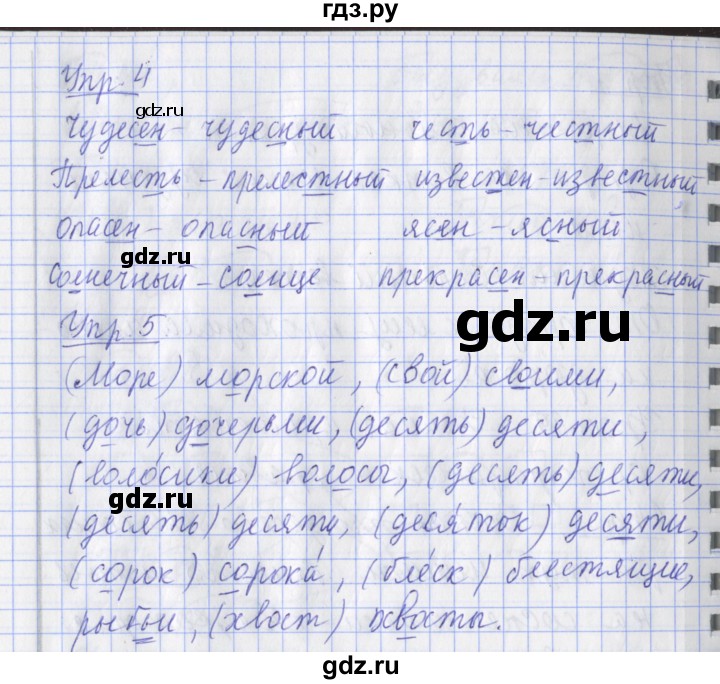 гдз.ру
Упр. 4
gdz.ru
Чудесен - чудесный честь - честный
Прелесть - прелестный известен - известный
опасен - опасный ясен - ясный
gdz.ru
Солнечный - солнце прекрасен - прекрасный
Упр. 5
gdz.ru
(Море) морской, (свой) своими,
(дочь) дочерьми, (десять) десяти,
(воло́сики) волосы, (десять) десяти,
gdz.ru
(десять) десяти, (деся́ток) десяти,
(сорок) сорока́, (бле́ск) блестящие,
рыбьи, (хвост) хвосты.
gdz.ru